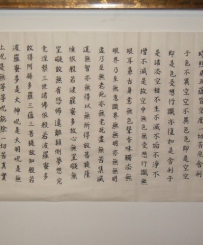 時照見五蘊皆空度一切苦厄舍利
子色不異空空不異色色即是空空
即是色受想行識亦復如是舍利子
是諸法空相不生不滅不垢不淨不
增不減是故空中無色無受想行識無
眼耳鼻舌身意無色聲香味觸法無
眼界乃至無意識界無無明亦無無明
盡乃至無老死亦無老死盡無苦集滅
道無智亦無得以無所得故菩提薩
埵依般若波羅蜜多故心無罣礙無
罣礙故無有恐怖遠離顛倒夢想究
竟涅槃三世諸佛依般若波羅蜜多
故得阿耨多羅三藐三菩提故知般若
波羅蜜多是大神咒是大明咒是無
上咒是無等等咒能除一切苦真實